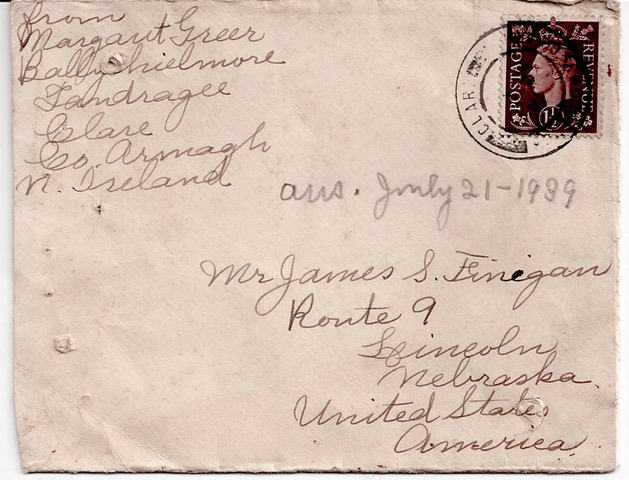 from
Margaret Greer
Ballyshielmore
Tandragee
Clare
Co. Armagh
N. Ireland
POSTAGE
REVENUE
1½D
CLARE
ans. July 21-1939
Mr James S. Finegan
Route 9
Lincoln
Nebraska.
United States
America.